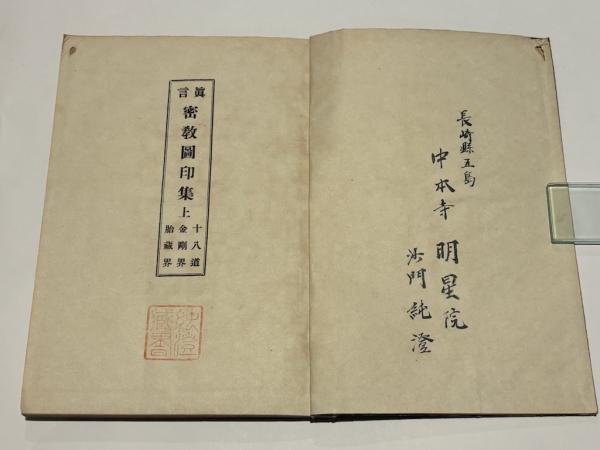 長崎縣五島
中本寺 明星院
沙門 純澄
眞言
密教圖印集 上
十八道
金剛界
胎藏界
純澄
藏書